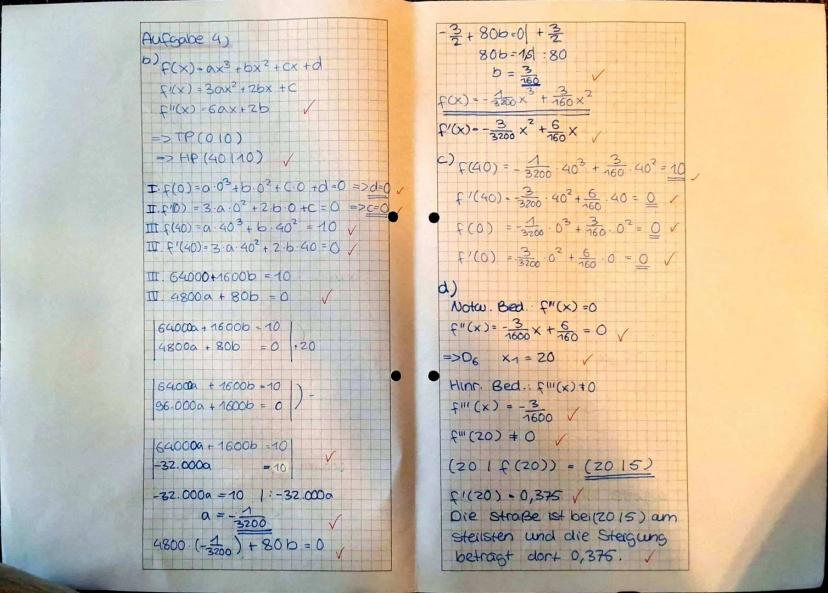 Aufgabe 4)
b) f(x) = ax³ + bx² + cx + d
f'(x) = 3ax² + 2bx + c
f''(x) = 6ax + 2b ✓
=> TP (0|0)
=> HP (40|10) ✓
I. f(0) = a·0³ + b·0² + c·0 + d = 0 => d=0 ✓
II. f'(0) = 3·a·0² + 2·b·0 + c = 0 => c=0 ✓
III. f(40) = a·40³ + b·40² = 10 ✓
IV. f'(40) = 3·a·40² + 2·b·40 = 0 ✓
III. 64000 + 1600b = 10
IV. 4800a + 80b = 0 ✓
|64000a + 1600b = 10|
|4800a + 80b = 0 | ·20
|64000a + 1600b = 10|
|96.000a + 1600b = 0| ) -
|64000a + 1600b = 10|
|-32.000a = 10| ✓
-32.000a = 10 | : -32.000a
a = -1/3200 ✓
4800 · (-1/3200) + 80b = 0 ✓
-3/2 + 80b = 0 | + 3/2
80b = 1,5 | : 80
b = 3/160 ✓
f(x) = -1/3200 x³ + 3/160 x²
f'(x) = -3/3200 x² + 6/160 x ✓
c) f(40) = -1/3200 · 40³ + 3/160 · 40² = 10 ✓
f'(40) = -3/3200 · 40² + 6/160 · 40 = 0 ✓
f(0) = -1/3200 · 0³ + 3/160 · 0² = 0 ✓
f'(0) = 3/3200 · 0² + 6/160 · 0 = 0 ✓
d)
Notw. Bed.: f''(x) = 0
f''(x) = -3/1600 x + 6/160 = 0 ✓
=> D6 x1 = 20 ✓
Hinr. Bed.: f'''(x) ≠ 0
f'''(x) = -3/1600 ✓
f'''(20) ≠ 0 ✓
(20 | f(20)) = (20|5)
f'(20) = 0,375 ✓
Die Straße ist bei (20|5) am
steilsten und die Steigung
beträgt dort 0,375. ✓